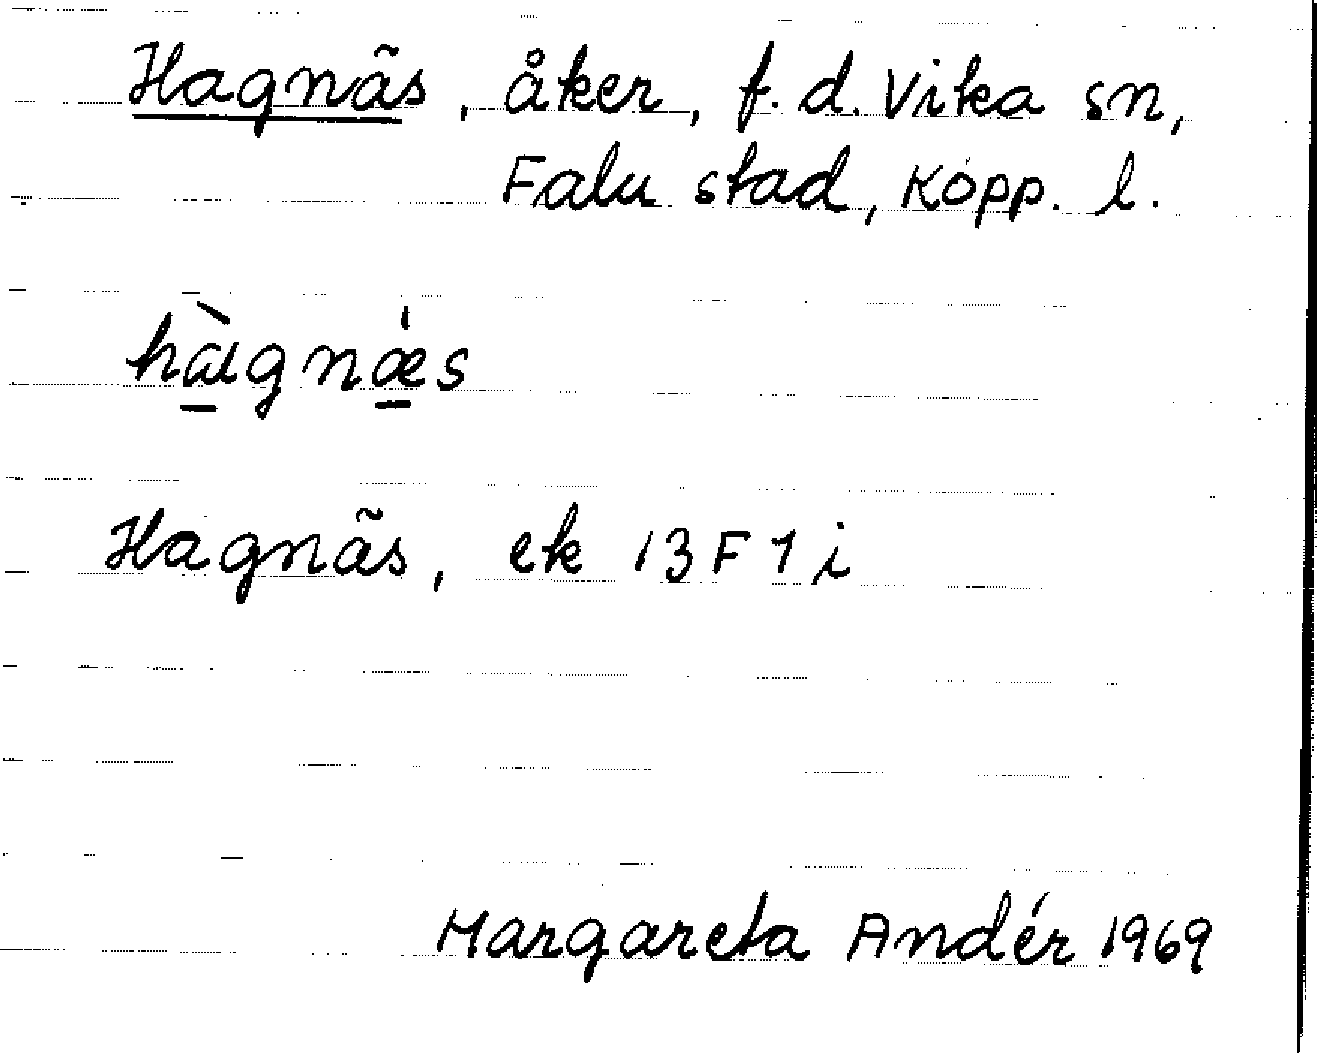 Hagnäs, åker, f.d. Vika sn,
Falu stad, Kopp. l.
hàgnǽs
Hagnäs, ek 13F1i
Margareta Andér 1969